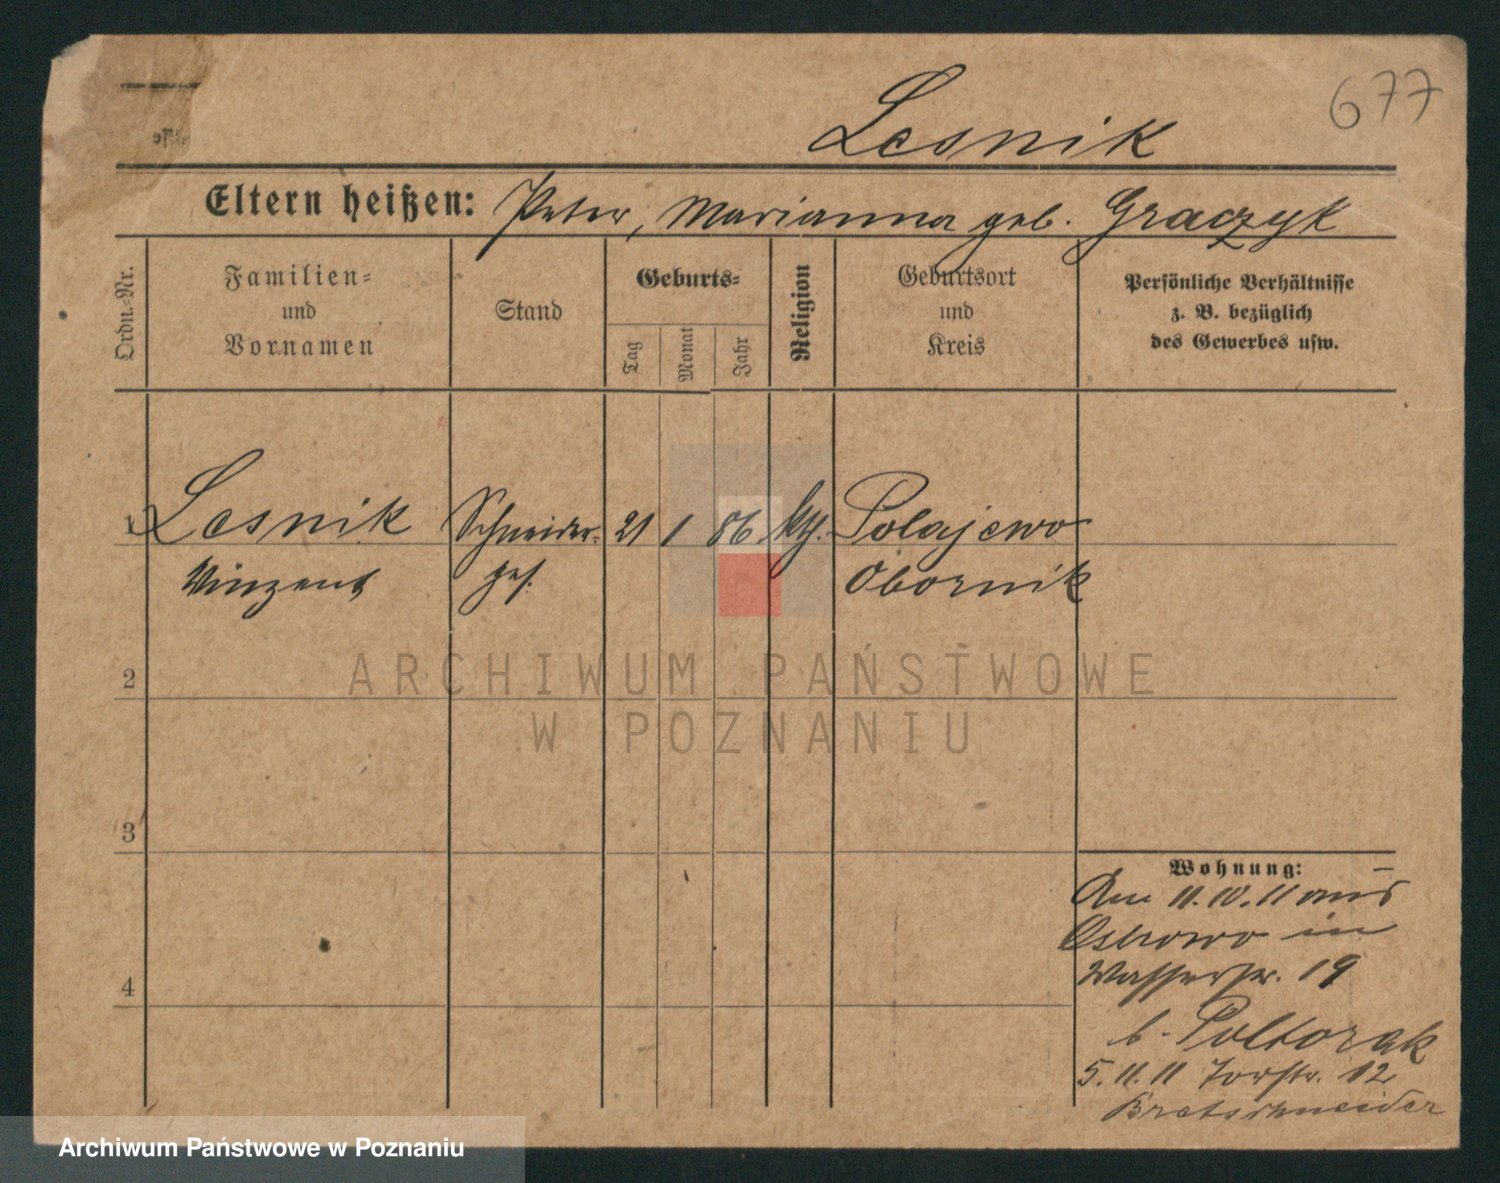 677
Lesnik
Eltern heißen: Peter, Marianna geb. Graczyk
Ordn.-Nr.
Familien-
und
Vornamen
Stand
Geburts-
Tag
Monat
Jahr
Religion
Geburtsort
und
Kreis
Persönliche Verhältnisse
z. B. bezüglich
des Gewerbes usw.
1 Lesnik Schneider- 21 1 86 kth. Polajewo
Vinzent ges. Obornik
2
3
4
Wohnung:
Am 11.10.11 aus
Ostrowo in
Wasserstr. 19
b. Poltorak
5.11.11 Torstr. 12
Bretschneider
ARCHIWUM PAŃSTWOWE
W POZNANIU
Archiwum Państwowe w Poznaniu